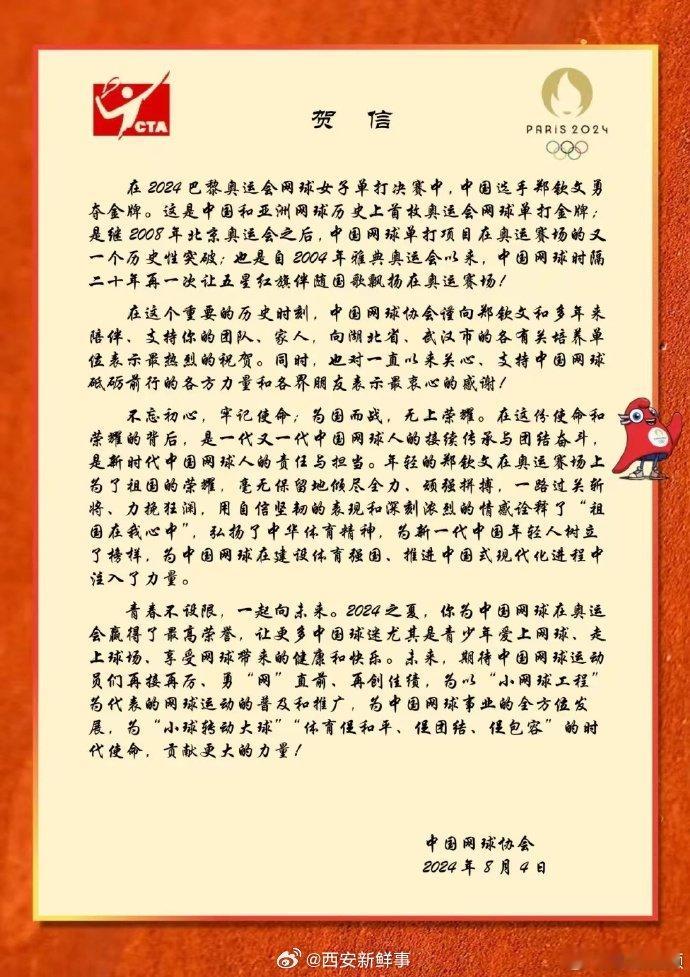 CTA
贺 信
PARIS 2024
在2024巴黎奥运会网球女子单打决赛中，中国选手郑钦文勇
夺金牌。这是中国和亚洲网球历史上首枚奥运会网球单打金牌；
是继2008年北京奥运会之后，中国网球单打项目在奥运赛场的又
一个历史性突破；也是自2004年雅典奥运会以来，中国网球时隔
二十年再一次让五星红旗伴随国歌飘扬在奥运赛场！
在这个重要的历史时刻，中国网球协会谨向郑钦文和多年来
陪伴、支持你的团队、家人，向湖北省、武汉市的各有关培养单
位表示最热烈的祝贺。同时，也对一直以来关心、支持中国网球
砥砺前行的各方力量和各界朋友表示最衷心的感谢！
不忘初心，牢记使命；为国而战，无上荣耀。在这份使命和
荣耀的背后，是一代又一代中国网球人的接续传承与团结奋斗，
是新时代中国网球人的责任与担当。年轻的郑钦文在奥运赛场上
为了祖国的荣耀，毫无保留地倾尽全力、顽强拼搏，一路过关斩
将、力挽狂澜，用自信坚韧的表现和深刻浓烈的情感诠释了“祖
国在我心中”，弘扬了中华体育精神，为新一代中国年轻人树立
了榜样，为中国网球在建设体育强国、推进中国式现代化进程中
注入了力量。
青春不设限，一起向未来。2024之夏，你为中国网球在奥运
会赢得了最高荣誉，让更多中国球迷尤其是青少年爱上网球、走
上球场、享受网球带来的健康和快乐。未来，期待中国网球运动
员们再接再厉、勇“网”直前、再创佳绩，为以“小网球工程”
为代表的网球运动的普及和推广，为中国网球事业的全方位发
展，为“小球转动大球”“体育促和平、促团结、促包容”的时
代使命，贡献更大的力量！
中国网球协会
2024年8月4日
@西安新鲜事